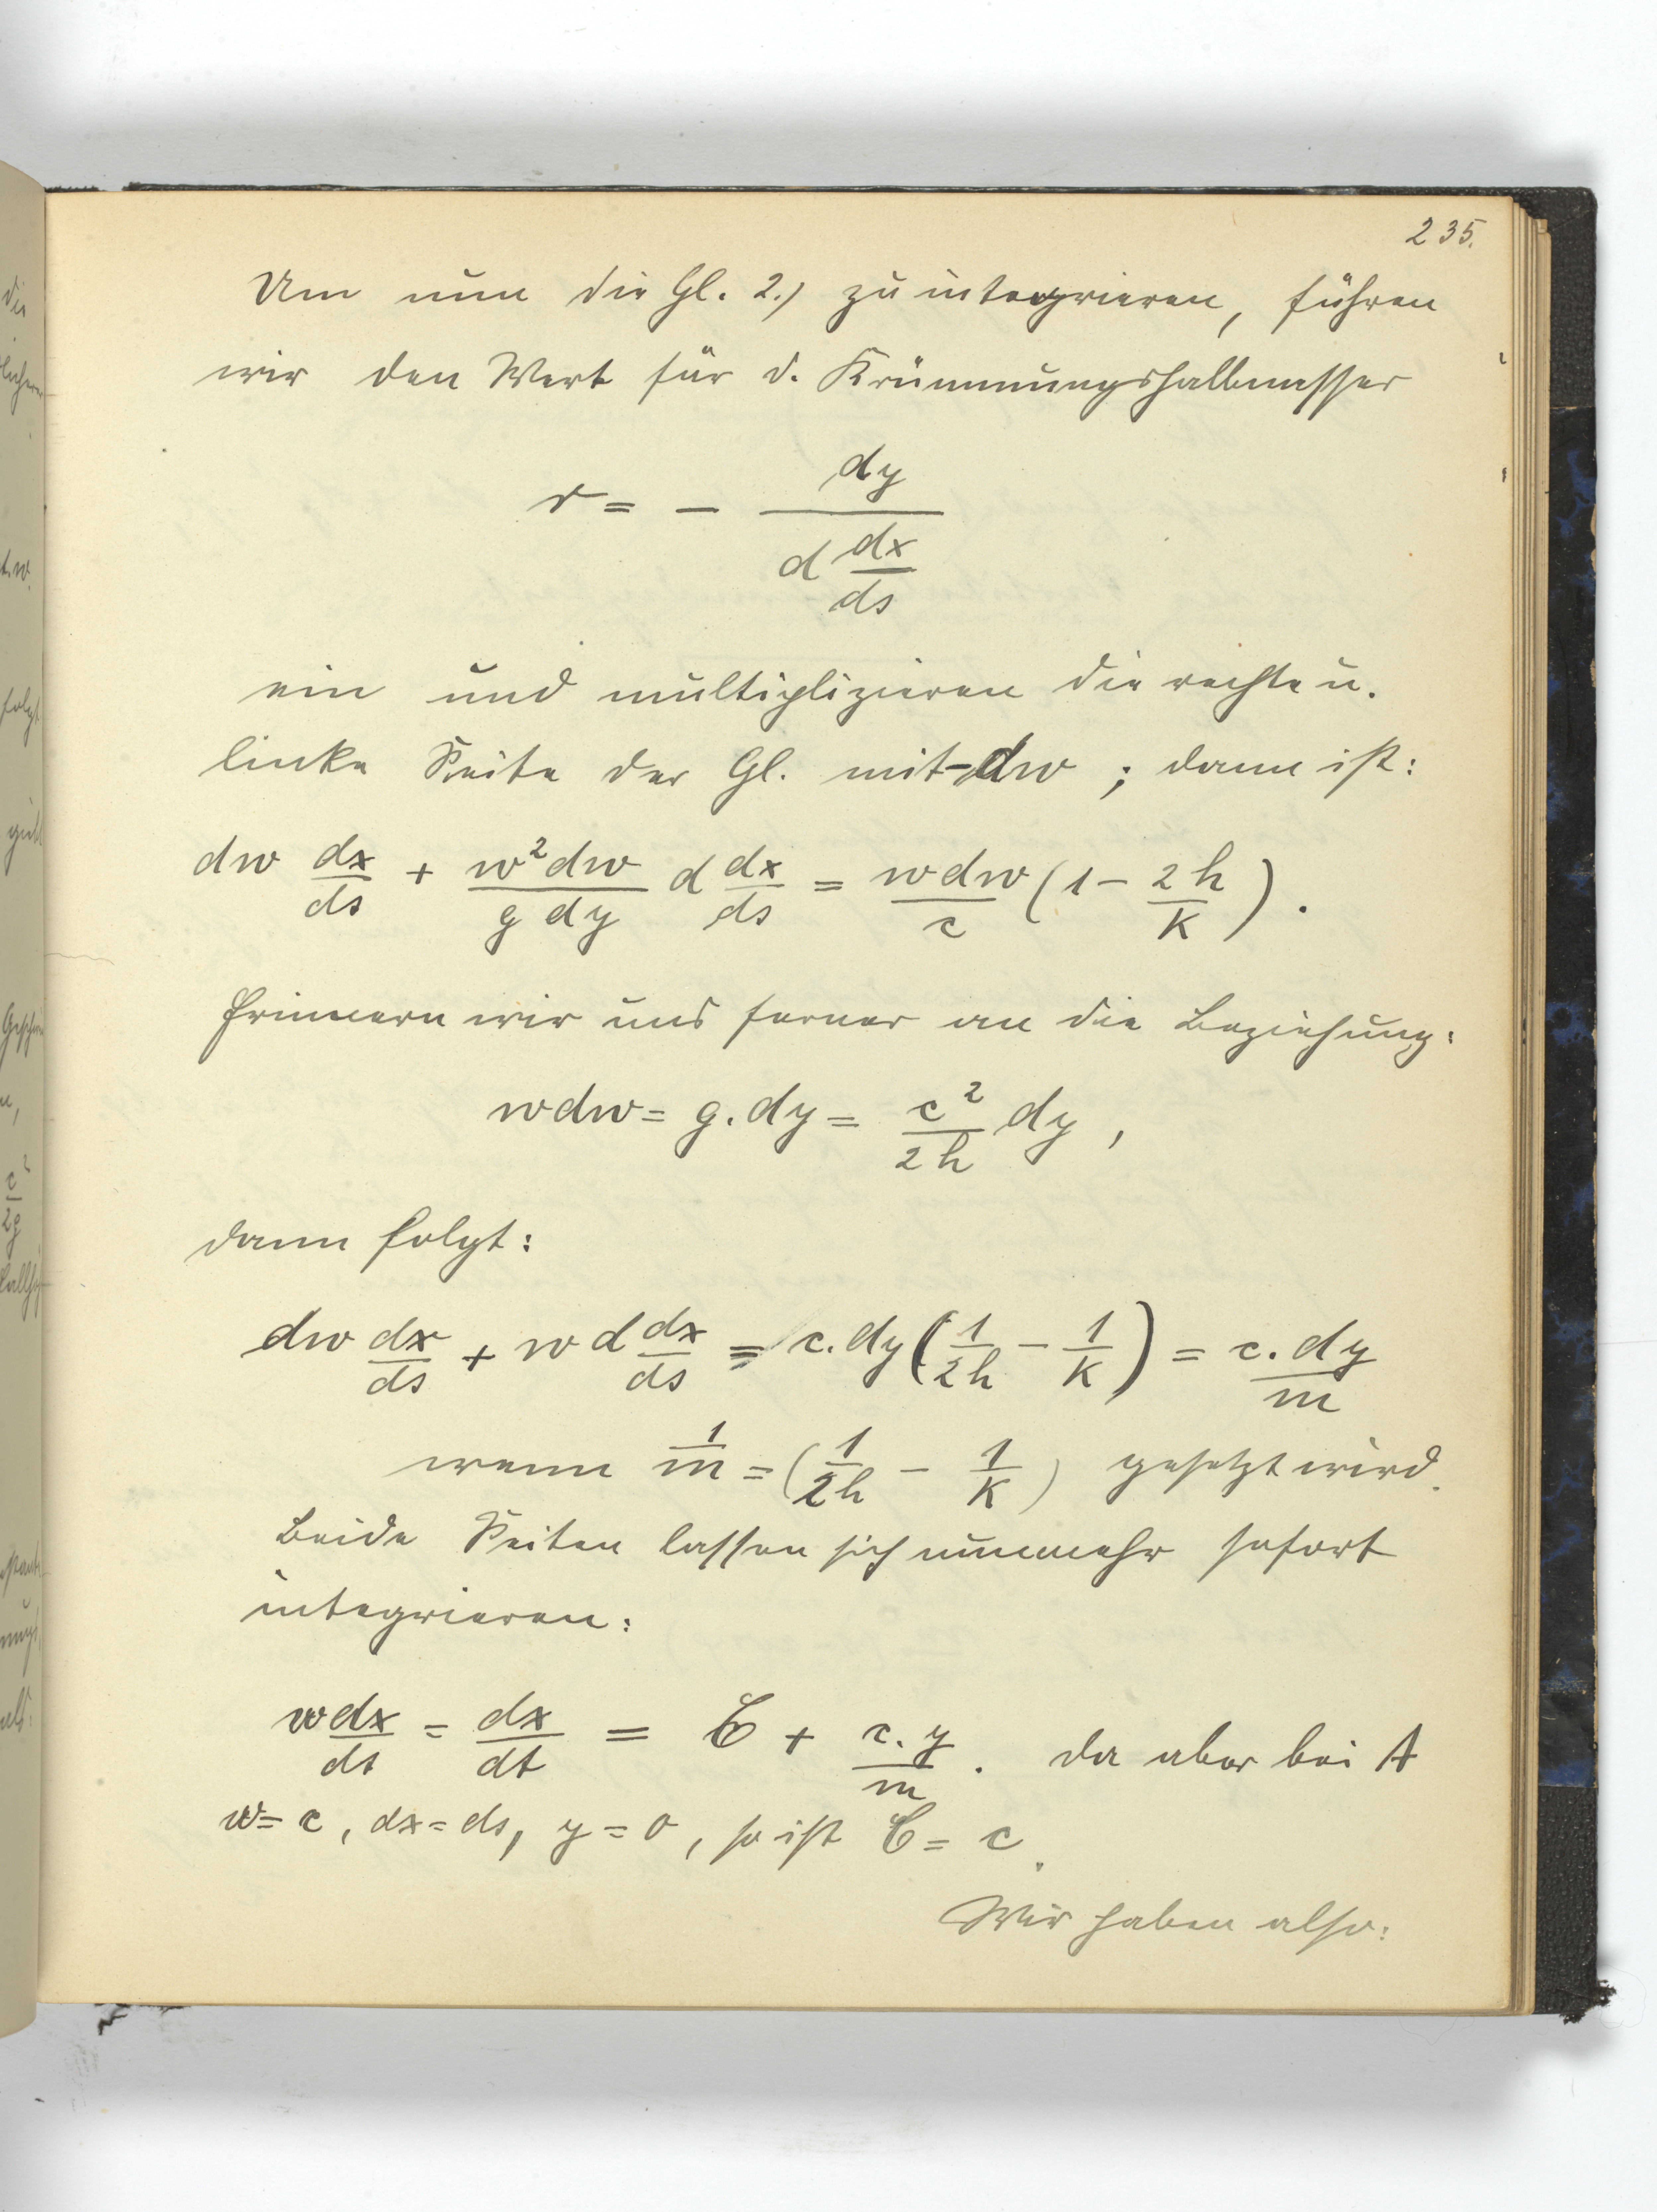 235.
Um nun die Gl. 2.) zu integrieren, führen
wir den Wert für d. Krümmungshalbmesser
r = - \frac{dy}{d \frac{dx}{ds}}
ein und multiplizieren die rechte u.
linke Seite der Gl. mit - dw ; dann ist:
dw \frac{dx}{ds} + \frac{w^2 dw}{g dy} d \frac{dx}{ds} = \frac{w dw}{c} (1 - \frac{2h}{k}).
Erinnern wir uns ferner an die Beziehung:
w dw = g. dy = \frac{c^2}{2h} dy ,
dann folgt:
dw \frac{dx}{ds} + w d \frac{dx}{ds} = c. dy (\frac{1}{2h} - \frac{1}{k}) = \frac{c. dy}{m}
wenn \frac{1}{m} = (\frac{1}{2h} - \frac{1}{k}) gesetzt wird.
Beide Seiten lassen sich nunmehr sofort
integrieren:
\frac{w dx}{ds} = \frac{dx}{dt} = C + \frac{c. y}{m}. Da aber bei A
w = c, dx = ds, y = 0, so ist C = c.
Wir haben also: